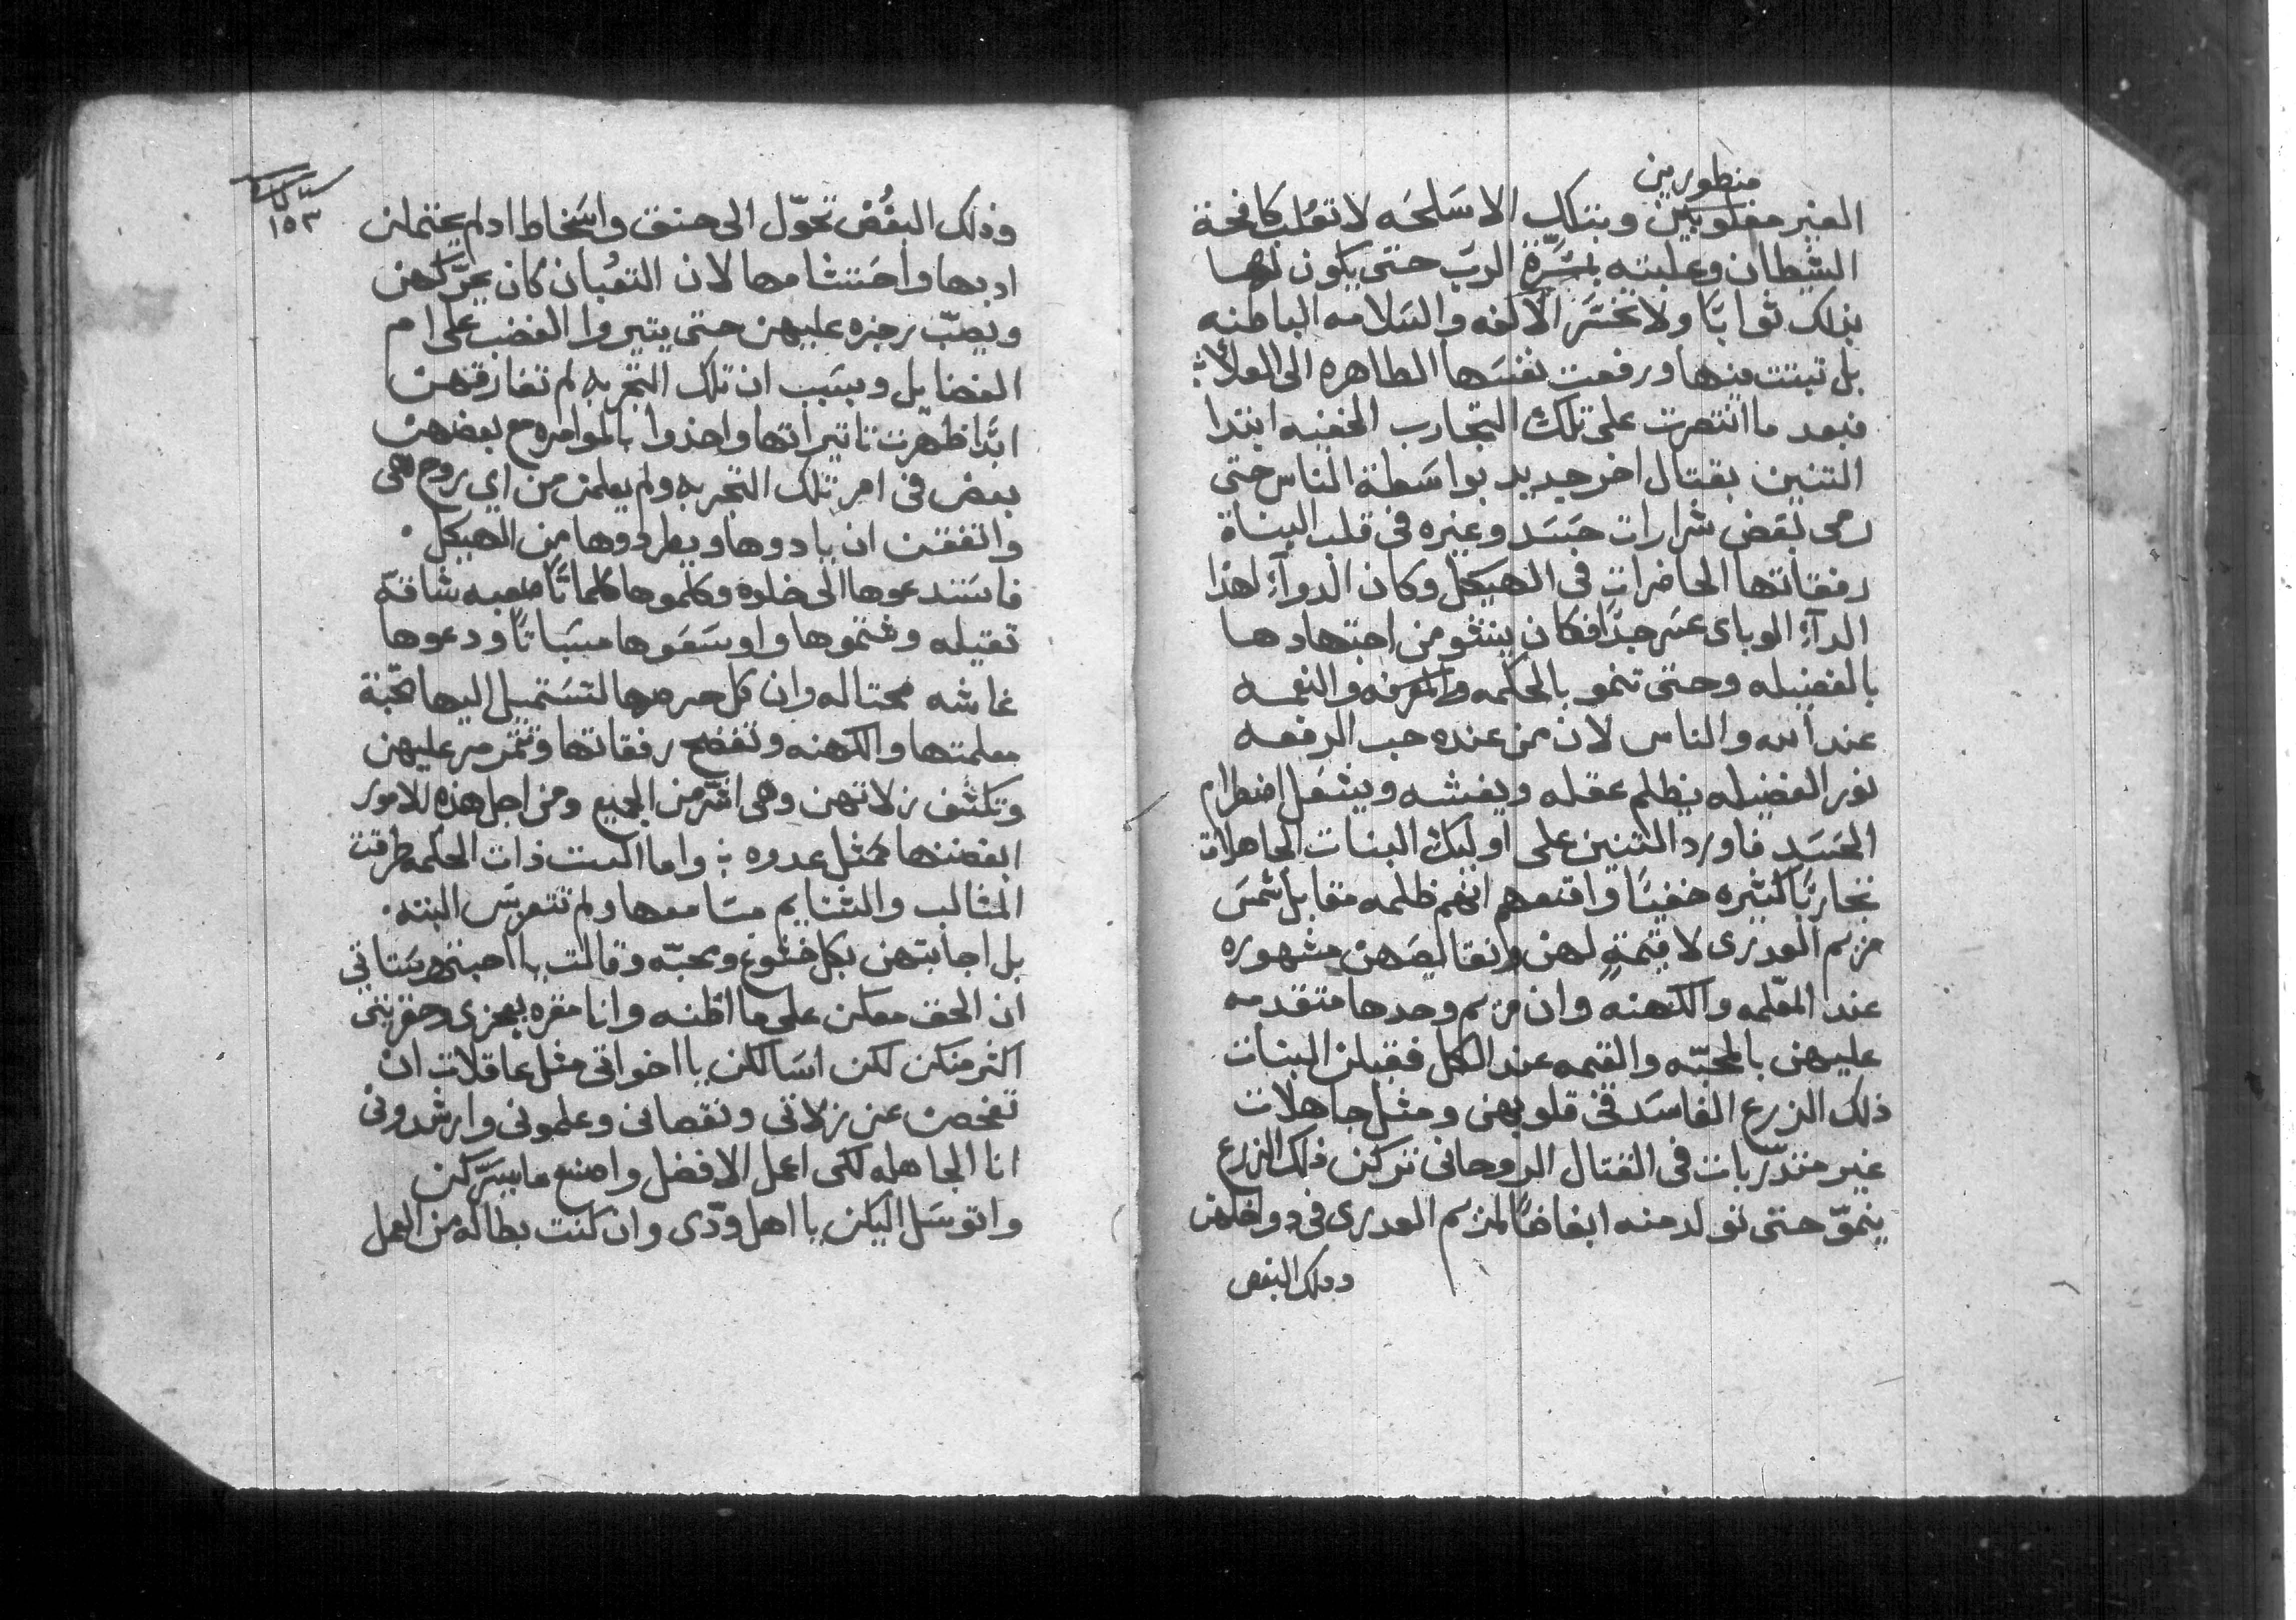 منظورين
الغير مغلوبين وبتلك الاسَلحَه لاتعُلب كافحة
الشيطان وعلبته بمسَّرة الربّ حتى يكون لهـا
بذلك ثوابًا ولا تخسَر الآلفه والسَلامه الباطنه
بل تبتت منها ورفعت نفسَها الطاهره الى العلاء
فبعد ما انتصرت على تلك التجارب الخفيه ابتدا
التنين بقتال اخر جديد بواسَطة الناس حتى
رمى بَعَض شرارات حَسَد وغيره فى قلب البناة
رفقاتها الحاضرات فى الهيكل وكان الدوآء لهذا
الدآء الوباى عسَر جدًا فكان ينشو من اجتهادهـا
بالفضيله وحتى تنمو بالحكمه والمعرفه والنعمـه
عند الله والناس لان من عنده حب الرفعـه
نور الفضيله يظلم عقله ويغشه ويشعَل اضطرام
الحسَد فاورد التنين على اوليك البنات الجاهلات
تجاربًا كثيره خفيًا واقنعهم انهم ظلمه مقابل شمسَ
مريم العدرى لا قيمة لهن ونقايصَهن مشهوره
عند المعّلمه والكهنه وان مريم وحدها متقدمه
عليهن بالمحبّه والقيمه عند الكل فقبلن البنات
ذلك الزرع الفاسَد فى قلوبهن ومثل جاهلات
غير متدّربات فى القتال الروحانى تركن ذلك الزرع
ينموّ حتى تولد منه ابغاضًا لمريم العدرى فى دواخلهن
ودلك البغض
١٥٣
وذلك البغُض تحوّل الى حنق واسَخاط اد لم يحتملن
ادبها واحَتشامها لان التعُبان كان يحرّكهن
ويصبّ رجزه عليهن حتى يتيروا الغضب على ام
الفضايل وبسَبب ان تلك التجربه لم تفارقهن
ابدًا ظهّرت تاتيراتها واخذوا بالموامره مع بعضهن
بعض فى امر تلك التجربه ولم يعلمن من اي روح هى
واتفقن ان يادوها ويطردوها من الهيكل
فاسَتدعوها الى خلوه وكلموها كلماتًا صعبه شاقّه
تقيله وشتموها واوسَعَوها مسَباتًا ودعوها
غاشه محتاله وان كل حرصها لتسَتميل اليها محّبة
معلمتها والكهنه وتفضح رفقاتها وتتمرمر عليهن
وتكشف زلاتهن وهى اشّر من الجميع ومن اجل هذه الامور
ابغضنها كمثل عدوه واما الست ذات الحكمه طرقت
المثالب والشتايم مسَامعها ولم تتعربسَ البته
بل اجابتهن بكل خشوع ومحبّه وقالت يا احبتى وسَتاتى
ان الحق معكن على ما اظنه وانا مقره بعجزى وحقريتى
اكثر منكن لكن اسَالكن يا اخواتى مثل عاقلات ان
تفحصن عن زلاتى ونقصانى وعلمونى وارشدونى
انا الجاهله لكى اعمل الافضل واصنع ما يسَرّكن
واتوسَل اليكن يا اهل ودّى وان كنت بطاله من العمل